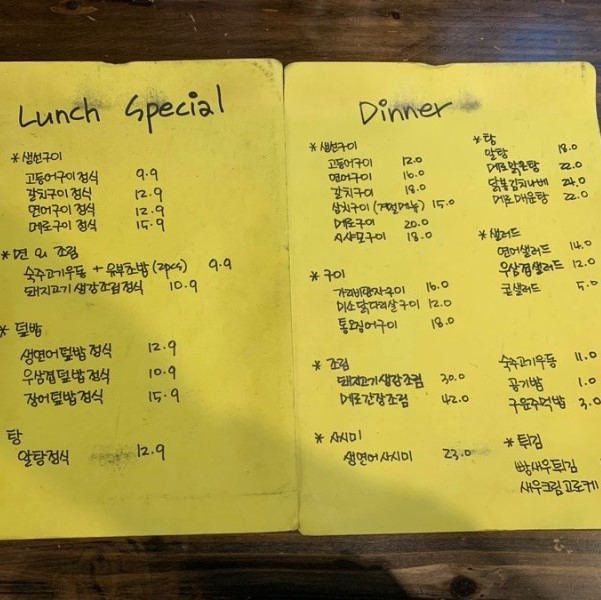 Lunch Special
*생선구이
고등어구이 정식 9.9
갈치구이 정식 12.9
연어구이 정식 12.9
메로구이 정식 15.9
* 면 와 조림
숙주고기우동 + 유부초밥 (2pcs) 9.9
돼지고기 생강조림정식 10.9
* 덮밥
생연어덮밥 정식 12.9
우삼겹 덮밥 정식 10.9
장어덮밥정식 15.9
탕
알탕정식 12.9
Dinner
* 생선구이
고등어구이 12.0
연어구이 16.0
갈치구이 18.0
삼치구이 (계절메뉴) 15.0
메로구이 20.0
시샤모구이 18.0
* 구이
가리비명자구이 16.0
미소닭다리살구이 12.0
통오징어구이 18.0
* 조림
돼지고기생강조림 30.0
메로간장조림 42.0
* 사시미
생연어사시미 23.0
* 탕
알탕 18.0
메로맑은탕 22.0
닭봉김치나베 24.0
메로매운탕 22.0
* 샐러드
연어샐러드 14.0
우삼겹샐러드 12.0
콘샐러드 5.0
숙주고기우동 11.0
공기밥 1.0
구운주먹밥 3.0
* 튀김
빵새우튀김
새우크림고로케